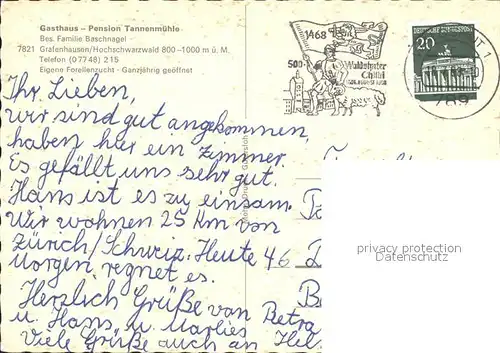 Gasthaus - Pension Tannenmühle
Bes. Familie Baschnagel
7821 Grafenhausen/Hochschwarzwald 800-1000 m ü. M.
Telefon (07748) 215
Eigene Forellenzucht - Ganzjährig geöffnet
1468
500
Waldshuter
Chilbi
DEUTSCHE BUNDESPOST
20
789
Ihr Lieben,
wir sind gut angekommen,
haben hier ein Zimmer.
Es gefällt uns sehr gut.
Hans ist es zu einsam.
Wir wohnen 25 Km von
Zürich/Schweiz. Heute
Morgen regnet es.
Herzlich Grüße von Petra
u. Hans, u. Marlies
Viele Grüße auch an Hel
46
privacy protection
Datenschutz